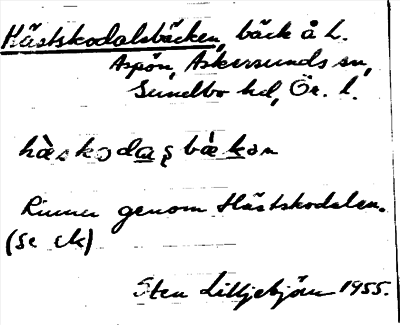 Hästskodalsbäcken, bäck å L.
Aspön, Askersunds sn,
Sundbo hd, Ör. l.
hàskodas bàkən
Rinner genom Hästskodalen.
(Se ek)
Sten Lilljebjörn 1955.